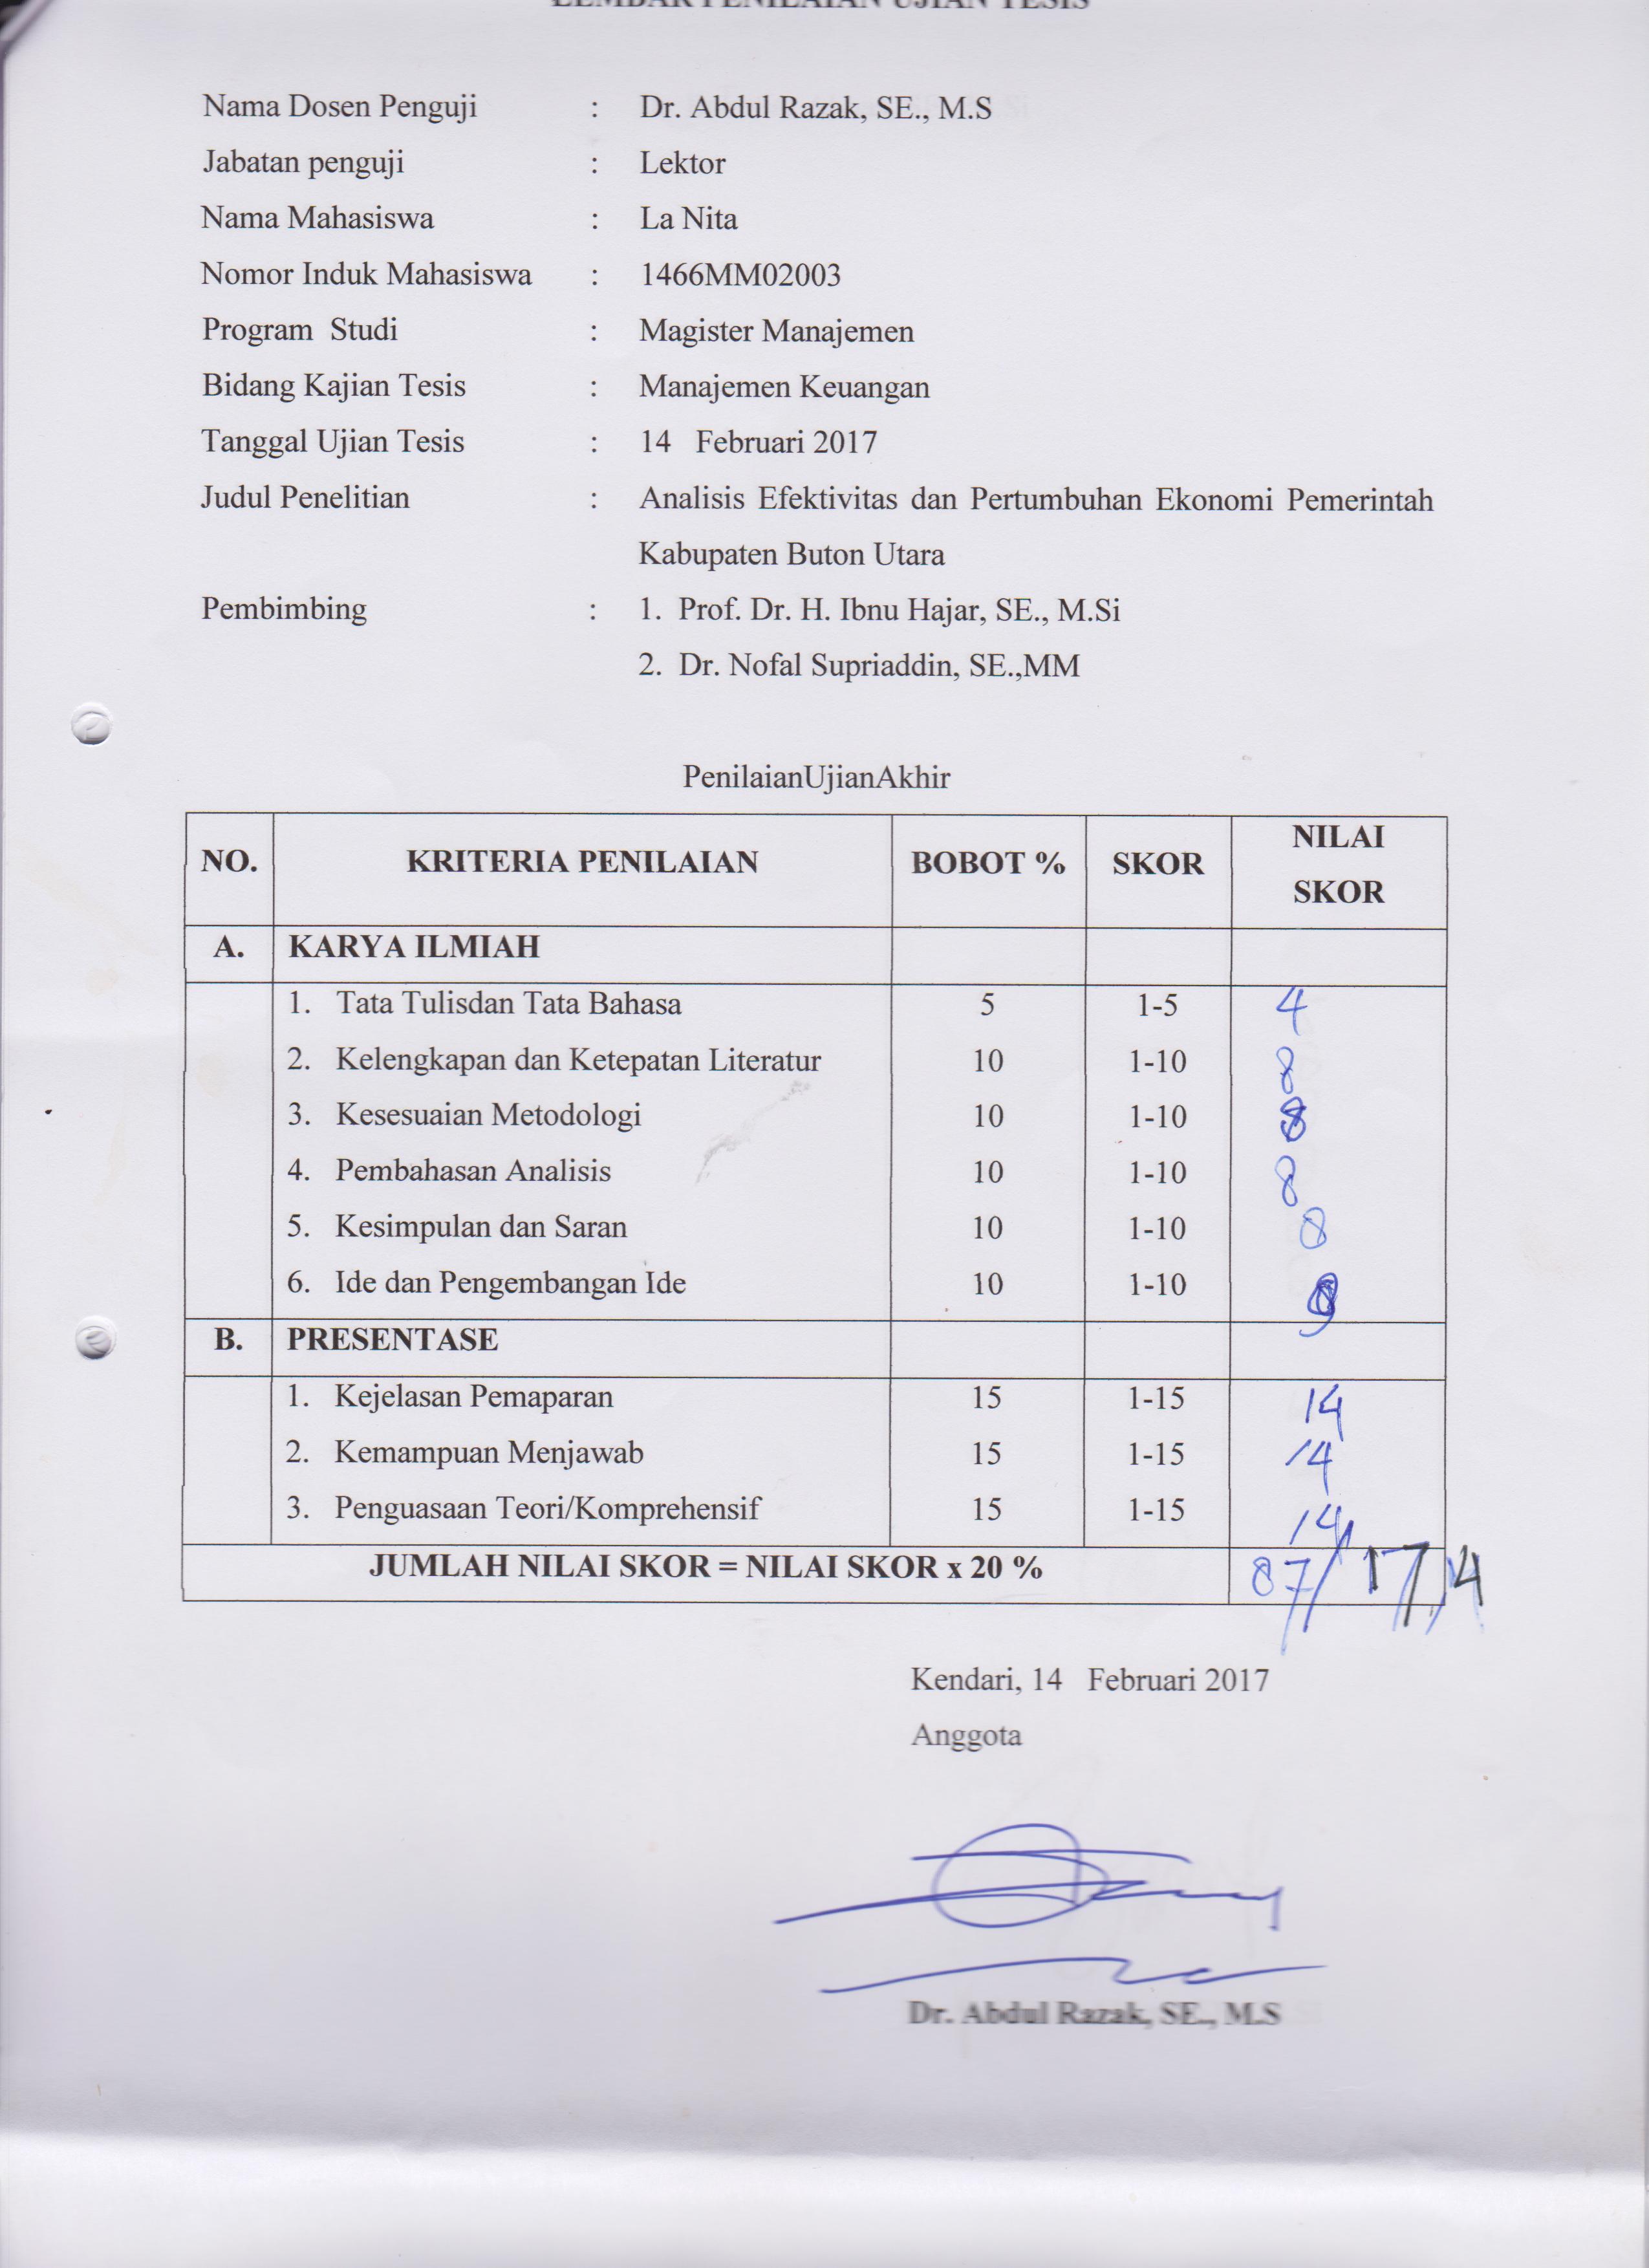 LEMBAR PENILAIAN UJIAN TESIS
Nama Dosen Penguji : Dr. Abdul Razak, SE., M.S
Jabatan penguji : Lektor
Nama Mahasiswa : La Nita
Nomor Induk Mahasiswa : 1466MM02003
Program Studi : Magister Manajemen
Bidang Kajian Tesis : Manajemen Keuangan
Tanggal Ujian Tesis : 14 Februari 2017
Judul Penelitian : Analisis Efektivitas dan Pertumbuhan Ekonomi Pemerintah
Kabupaten Buton Utara
Pembimbing : 1. Prof. Dr. H. Ibnu Hajar, SE., M.Si
2. Dr. Nofal Supriaddin, SE.,MM
PenilaianUjianAkhir
NO. KRITERIA PENILAIAN BOBOT % SKOR NILAI SKOR
A. KARYA ILMIAH
1. Tata Tulisdan Tata Bahasa 5 1-5 4
2. Kelengkapan dan Ketepatan Literatur 10 1-10 8
3. Kesesuaian Metodologi 10 1-10 8
4. Pembahasan Analisis 10 1-10 8
5. Kesimpulan dan Saran 10 1-10 8
6. Ide dan Pengembangan Ide 10 1-10 9
B. PRESENTASE
1. Kejelasan Pemaparan 15 1-15 14
2. Kemampuan Menjawab 15 1-15 14
3. Penguasaan Teori/Komprehensif 15 1-15 14
JUMLAH NILAI SKOR = NILAI SKOR x 20 % 87/17,4
Kendari, 14 Februari 2017
Anggota
Dr. Abdul Razak, SE., M.S